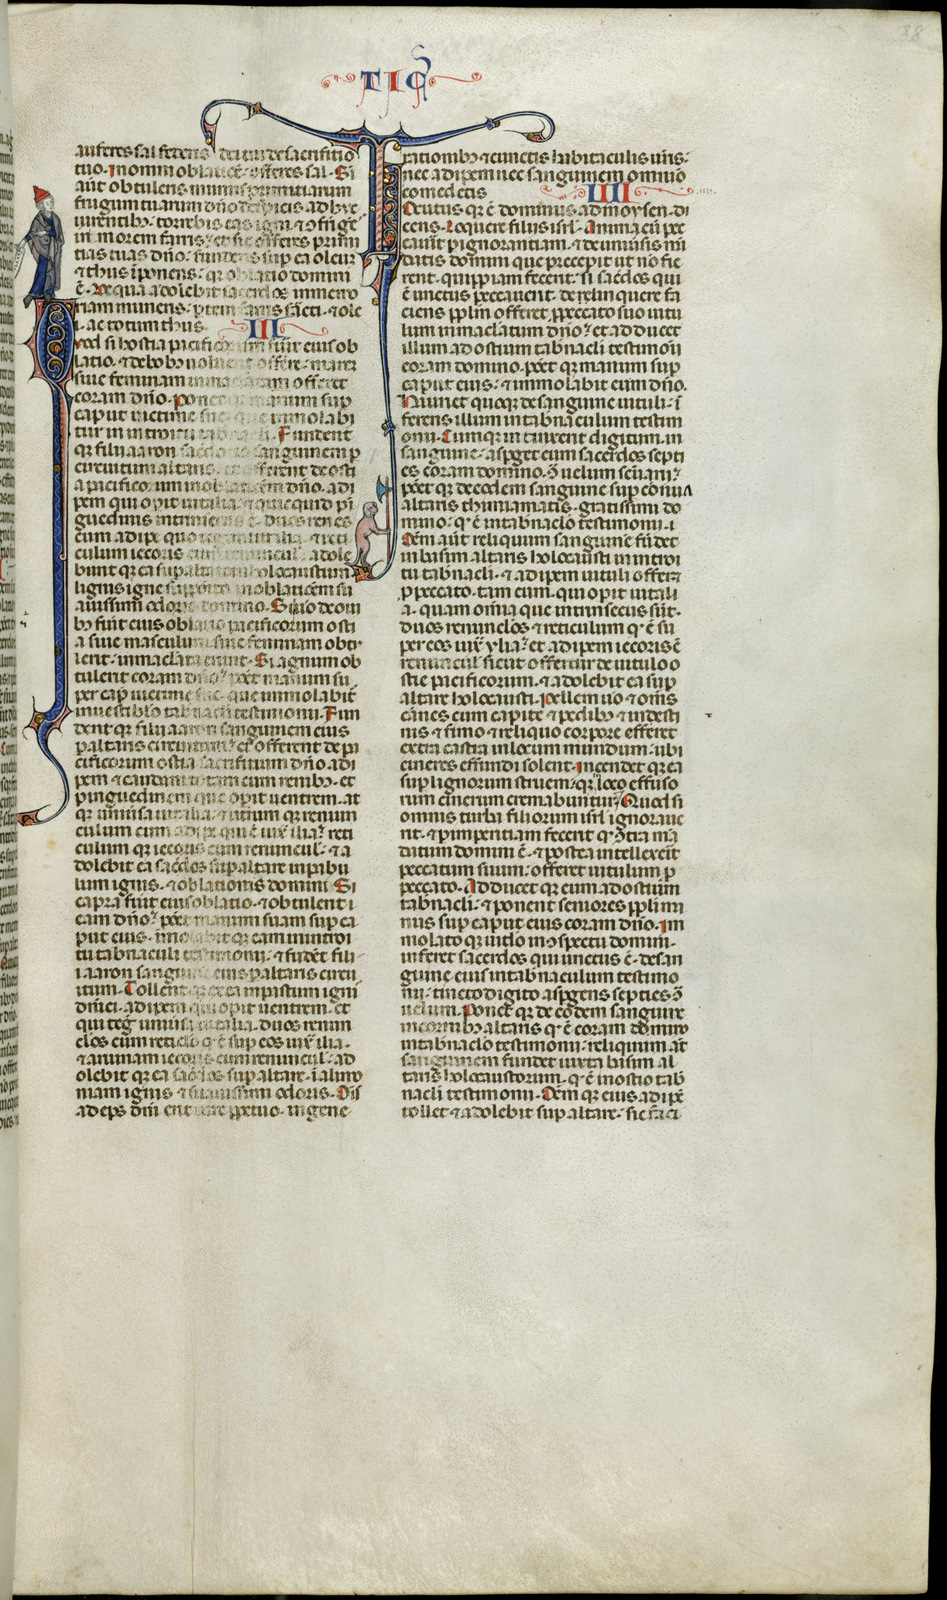 38
TICꝰ
auferes sal federis dei tui de sacrificio
tuo. In omni oblatiōe offeres sal. Si
aūt obtuleris munus primitiarum
frugum tuarum dn̄o de spicis adhuc
uirentibꝫ. torrebis eas igni ⁊ ɔfringes
in morem farris. et sic offeres primi
tias tuas dn̄o. fundens sup ea oleū
⁊ thus īponens. qꝛ oblatio domini
ē. De qua adolebit sacerdos in memo
riam muneris. ptem farris fracti. ⁊ ole
i. ac totum thus.
III
Qvod si hostia pacificorum fuīt eius ob
latio. ⁊ de bobꝫ uoluerit offerre. marē
siue feminam inmaculatam offeret
coram dn̄o. Ponet qꝫ manum sup
caput uictime sue. que immolabi
tur in introitu tabnacli. Fundent
qꝫ filii aaron sacerdotes sanguinem p
circuitum altaris. et offerent de osti
a pacificorum in oblatiōem dn̄o. adi
pem qui opit uitalia. ⁊ quicquid pī
guedinis intrinsecus ē. duos renes
cum adipe quo tegunt ilia. ⁊ reti
culum iecoris cum renuncul. adole
bunt qꝫ ea sup altare in holocaustum
lignis igne supposito. in oblatiōem su
auissimi odoris domino. Si uō de oui
bꝫ fuīt eius oblatio pacificorum osti
a siue masculum siue feminam obtu
lerit. inmaculata erunt. Si agnum ob
tulerit coram dn̄o. ponet manum su
per cap uictime sue. que immolabit̄
in uestiblo tabnacli testimonii. Fun
dent qꝫ filii aaron sanguinem eius
p altaris circuitum. et offerent de pa
cificorum ostia sacrificium dn̄o. adi
pem ⁊ caudam totam cum renibꝫ. et
pinguedinem que opit uentrem. at
qꝫ uniuersa uitalia. ⁊ utrum qꝫ renun
culum cum adipe qui ē iux̄ ilia. reti
culum qꝫ iecoris cum renuncul. ⁊ a
dolebit ea sacdos sup altare in pabu
lum ignis. ⁊ oblationis domini. Si
capra fuīt eius oblatio. ⁊ obtulerit e
am dn̄o. ponet manum suam sup ca
put eius. īmolabit qꝫ eam in introi
tu tabnaculi testimonii. ⁊ fundēt fili
i aaron sanguinē eius p altaris circu
itum. Tollent qꝫ ex ea in pastum igni
dnīci. adipem qui opit uentrem. et
qui tegit uniūsa uitalia. duos renun
clos cum reticlo qꝫ ē sup eos iux̄ ilia.
⁊ aruinam iecoris cum renuncul. ad
olebit qꝫ ea sacdos sup altare. ī alimo
niam ignis ⁊ suauissimi odoris. Oīs
adeps dnī erit iure ppetuo. in gene
rationibꝫ ⁊ cunctis habitaculis uris.
nec adipem nec sanguinem omnīo
comedetis.
IIII
Locutus qꝫ ē dominus ad moysen. di
cens. Loquere filiis isrl. Anima cū pec
cauīt p ignorantiam. ⁊ de uniūsis mā
datis domini que precepit ut nō fie
rent. quippiam fecerit. si sacdos qui
ē unctus peccauerit. delinquere fa
ciens pplm. offeret p peccato suo uitu
lum inmaclatum dn̄o. et adducet
illum ad ostium tabnacli testimonii
coram domino. poet qꝫ manum sup
caput eius. ⁊ immolabit eum dn̄o.
Hauriet quoqꝫ de sanguine uituli. ī
ferens illum in tabnaculum testim
onii. Cumqꝫ intinxerit digitum in
sanguine. asperget eum sacdos septi
es coram domino. ɔ̄ uelum sc̄uarii.
poet qꝫ de eodem sanguine sup cornua
altaris thimiamatis. gratissimi do
mino. qꝫ ē in tabnaclo testimonii. o
mēm aūt reliquum sanguinē fūdet
in basim altaris holocausti in introi
tu tabnacli. ⁊ adipem uituli offeret
p peccato. tam eum qui opit uitali
a. quam omīa que intrinsecus sūt.
duos renunclos. ⁊ reticulum qꝫ ē su
per eos iux̄ ylia. et adipem iecoris cū
renuncul. sicut offertur de uitulo o
stie pacificorum. ⁊ adolebit ea sup
altare holocausti. Pellem uō ⁊ oms
carnes cum capite ⁊ pedibꝫ ⁊ intesti
nis ⁊ fimo ⁊ reliquo corpore efferet
extra castra in locum mundum. ubi
cineres effundi solent. Incendet qꝫ ea
sup lignorum struem. que in loco effuso
rum cinerum cremabuntur. Quod si
omnis turba filiorum isrl ignoraue
rit. ⁊ p imperitiam fecerit qꝫ ɔ̄tra mā
datum domini ē. ⁊ postea intellexerit
peccatum suum. offeret uitulum p
peccato. Adducet qꝫ eum ad ostium
tabnacli. ⁊ ponent seniores ppli ma
nus sup caput eius coram dn̄o. Im
molato qꝫ uitlo in ɔspectu domini.
inferet sacerdos qui unctus ē. de san
guine eius in tabnaculum testimo
nii. tincto digito aspgens septies ɔ̄
uelum. Ponet qꝫ de eodem sanguine
in cornibꝫ altaris qꝫ ē coram domino
in tabnaclo testimonii. reliquum aūt
sanguinem fundet iuxta basim al
taris holocaustorum. qꝫ ē in ostio tab
nacli testimonii. Omēm qꝫ eius adipē
tollet ⁊ adolebit sup altare. sic faci